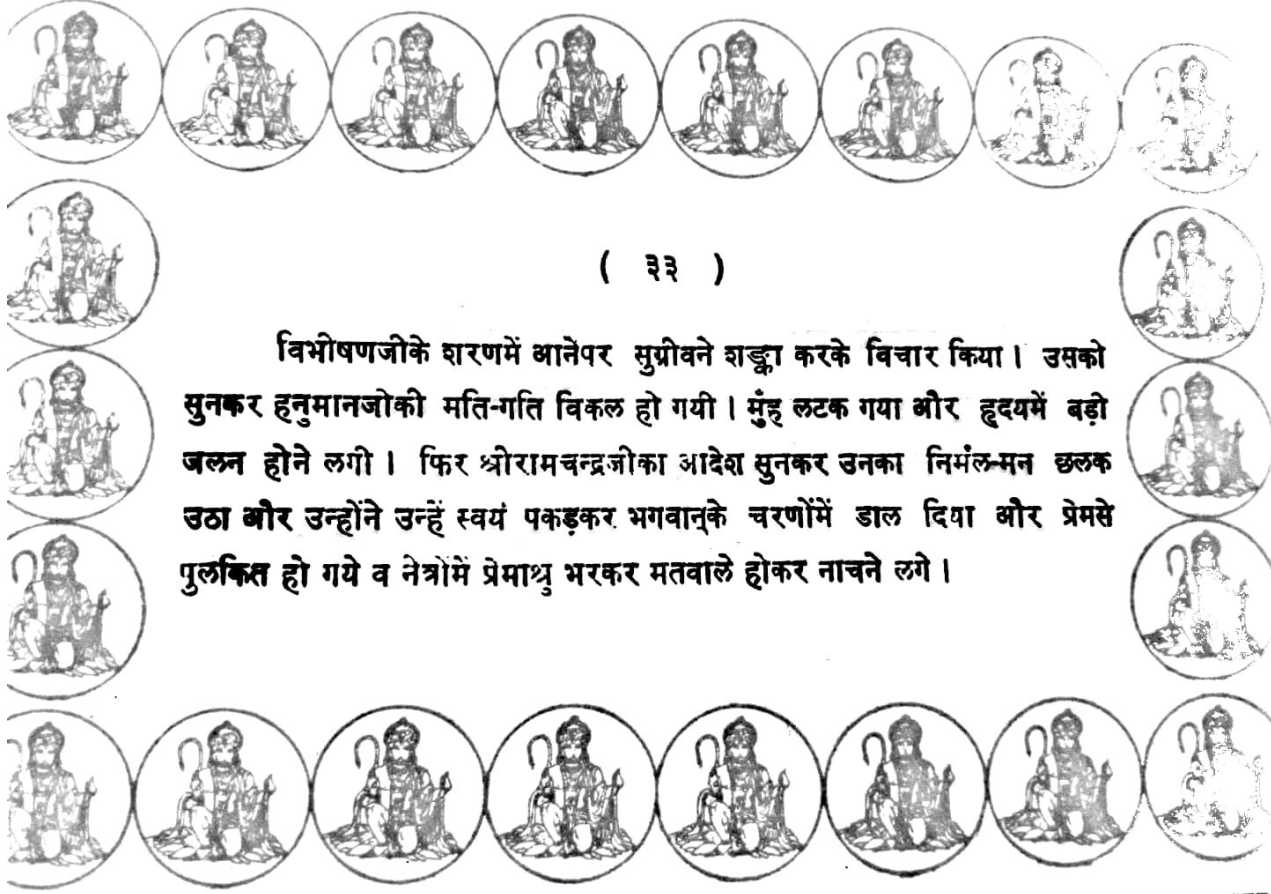 ( ३३ )
विभीषणजीके शरणमें आनेपर सुग्रीवने शङ्का करके विचार किया । उसको
सुनकर हनुमानजीकी मति-गति विकल हो गयी । मुँह लटक गया और हृदयमें बड़ी
जलन होने लगी । फिर श्रीरामचन्द्रजीका आदेश सुनकर उनका निर्मल-मन छलक
उठा और उन्होंने उन्हें स्वयं पकड़कर भगवान्‌के चरणोंमें डाल दिया और प्रेमसे
पुलकित हो गये व नेत्रोंमें प्रेमाश्रु भरकर मतवाले होकर नाचने लगे ।